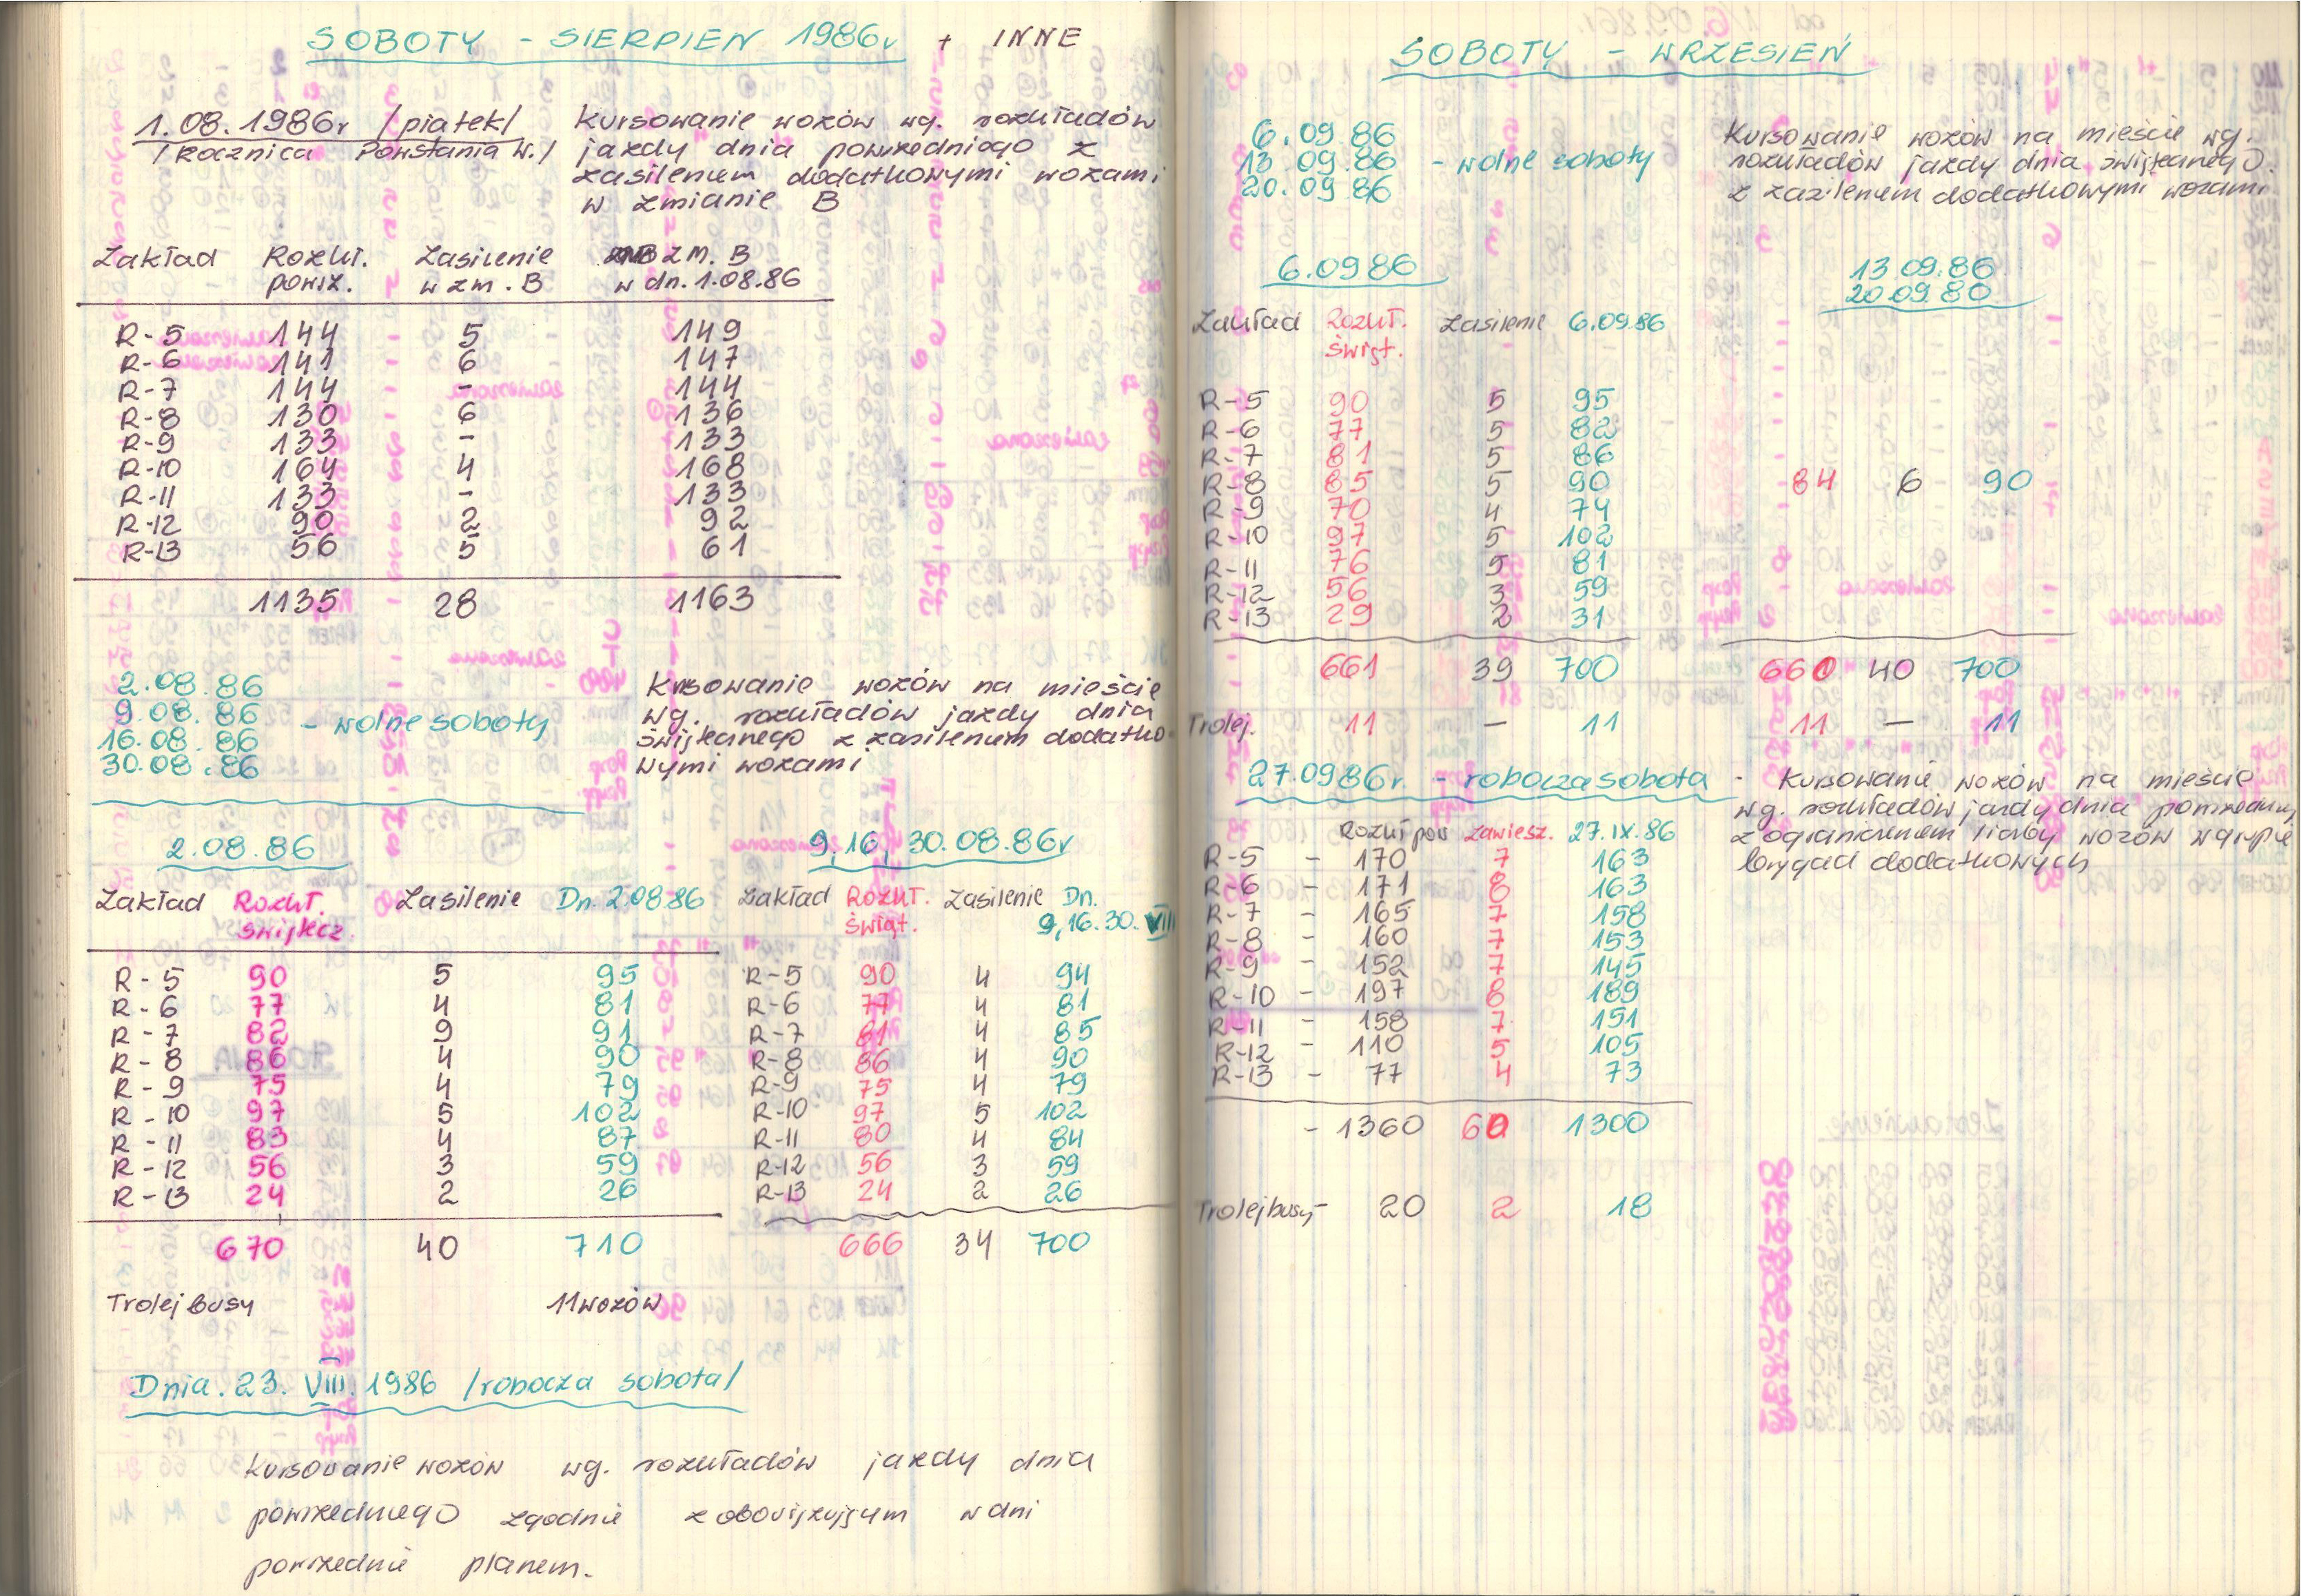 SOBOTY - SIERPIEŃ 1986r + INNE
1.08.1986r /piątek/
/Rocznica Powstania W./
Kursowanie wozów wg. rozkładów
jazdy dnia powszedniego z
zasileniem dodatkowymi wozami
w zmianie B
Zakład Rozkł. Zasilenie zm. B
powsz. w zm. B w dn. 1.08.86
R-5 144 5 149
R-6 141 6 147
R-7 144 - 144
R-8 130 6 136
R-9 133 - 133
R-10 164 4 168
R-11 133 - 133
R-12 90 2 92
R-13 56 5 61
1135 28 1163
2.08.86
9.08.86
16.08.86
30.08.86
- wolne soboty
Kursowanie wozów na mieście
wg. rozkładów jazdy dnia
świątecznego z zasileniem dodatko
wymi wozami
2.08.86
Zakład Rozkł. Zasilenie Dn. 2.08.86
świątecz.
R-5 90 5 95
R-6 77 4 81
R-7 82 9 91
R-8 86 4 90
R-9 75 4 79
R-10 97 5 102
R-11 83 4 87
R-12 56 3 59
R-13 24 2 26
670 40 710
Trolejbusy 11 wozów
9,16, 30.08.86r
Zakład Rozkł. Zasilenie Dn.
świąt. 9,16.30.VIII
R-5 90 4 94
R-6 77 4 81
R-7 81 4 85
R-8 86 4 90
R-9 75 4 79
R-10 97 5 102
R-11 80 4 84
R-12 56 3 59
R-13 24 2 26
666 34 700
Dnia. 23. VIII. 1986 /robocza sobota/
Kursowanie wozów wg. rozkładów jazdy dnia
powszedniego zgodnie z obowiązującym w dni
powszednie planem.
SOBOTY - WRZESIEŃ
6.09.86
13.09.86
20.09.86
- wolne soboty
Kursowanie wozów na mieście wg.
rozkładów jazdy dnia świątecznego.
z zasileniem dodatkowymi wozami
6.09 86
Zakład Rozkł. Zasilenie 6.09.86
świąt.
R-5 90 5 95
R-6 77 5 82
R-7 81 5 86
R-8 85 5 90
R-9 70 4 74
R-10 97 5 102
R-11 76 5 81
R-12 56 3 59
R-13 29 2 31
661 39 700
Trolej. 11 - 11
13 09.86
20.09.80
84 6 90
660 40 700
11 - 11
27.09 86r. - robocza sobota - Kursowanie wozów na mieście
wg. rozkładów jazdy dnia powszedniego
z ograniczeniem liczby wozów w grupie
brygad dodatkowych
Rozkł pow zawiesz. 27.IX.86
R-5 - 170 7 163
R-6 - 171 8 163
R-7 - 165 7 158
R-8 - 160 7 153
R-9 - 152 7 145
R-10 - 197 8 189
R-11 - 158 7 151
R-12 - 110 5 105
R-13 - 77 4 73
- 1360 60 1300
Trolejbusy - 20 2 18